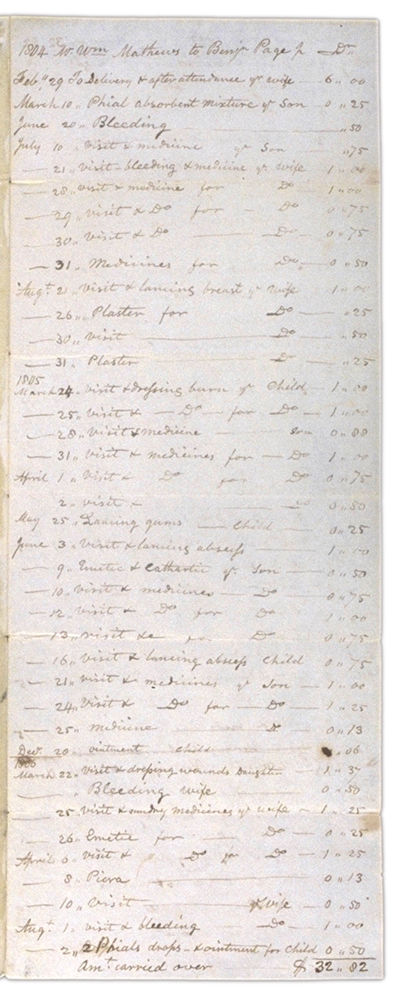 1804 Mr Wm Mathews to Benjn Page Jr Dr
Feby 29 To Delivery & after attendance yr wife 6 " 00
March 10 " Phial absorbent mixture yr Son 0 " 25
June 20 " Bleeding " 50
July 10 " visit & medicine yr Son " 75
21 " visit bleeding & medicine yr wife 1 " 00
28 " visit & medicine for Do 1 " 00
29 " visit & Do for Do 0 " 75
30 " visit & Do Do 0 " 75
31 " Medicines for Do 0 " 50
Augt 2 " visit & lancing breast yr wife 1 " 00
26 " Plaster for Do " 25
30 " visit Do " 50
31 " Plaster Do " 25
1805
March 24 " visit & dressing burn yr Child 1 " 00
25 " visit & Do for Do 1 " 00
28 " visit & medicine Son 0 " 88
31 " visit & medicines for Do 1 " 00
April 1 " visit & Do for Do 0 " 75
2 " visit & Do 0 " 50
May 25 " Lancing gums Child 0 " 25
June 3 " visit & lancing abscess 1 " 00
9 " Emetic & Cathartic yr Son 0 " 50
10 " visit & medicines Do 0 " 75
12 " visit & Do for Do 1 " 00
13 " visit &c for Do 0 " 75
16 " visit & lancing abscess Child 0 " 75
21 " visit & medicines yr Son 1 " 00
24 " visit & Do for Do 1 " 25
25 " medicine Do 0 " 13
Decr 20 " ointment child " 06
1806
March 22 " visit & dressing wounds Daught. 1 "
" Bleeding wife 0 " 50
25 " visit & sundry medicines yr wife 1 " 25
26 " Emetic for Do 0 " 25
April 6 " visit & Do for Do 1 " 25
8 " Picra 0 " 13
10 " visit yr wife 0 " 50
Augt 1 " visit & bleeding Do 1 " 00
2 " 2 Phials drops & ointment for Child 0 " 50
Amt carried over $ 32 " 82